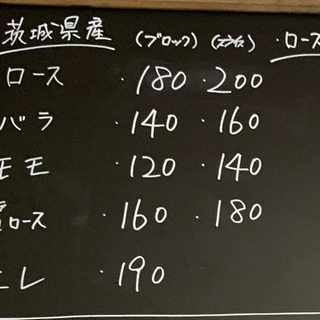 茨城県産 (ブロック) (スライス) ・ロース
ロース ・180 ・200
バラ ・140 ・160
モモ ・120 ・140
肩ロース ・160 ・180
ヒレ ・190